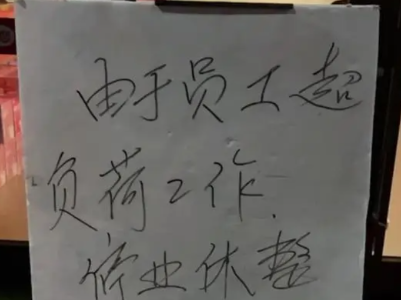 由于员工超
负荷工作.
停业休整